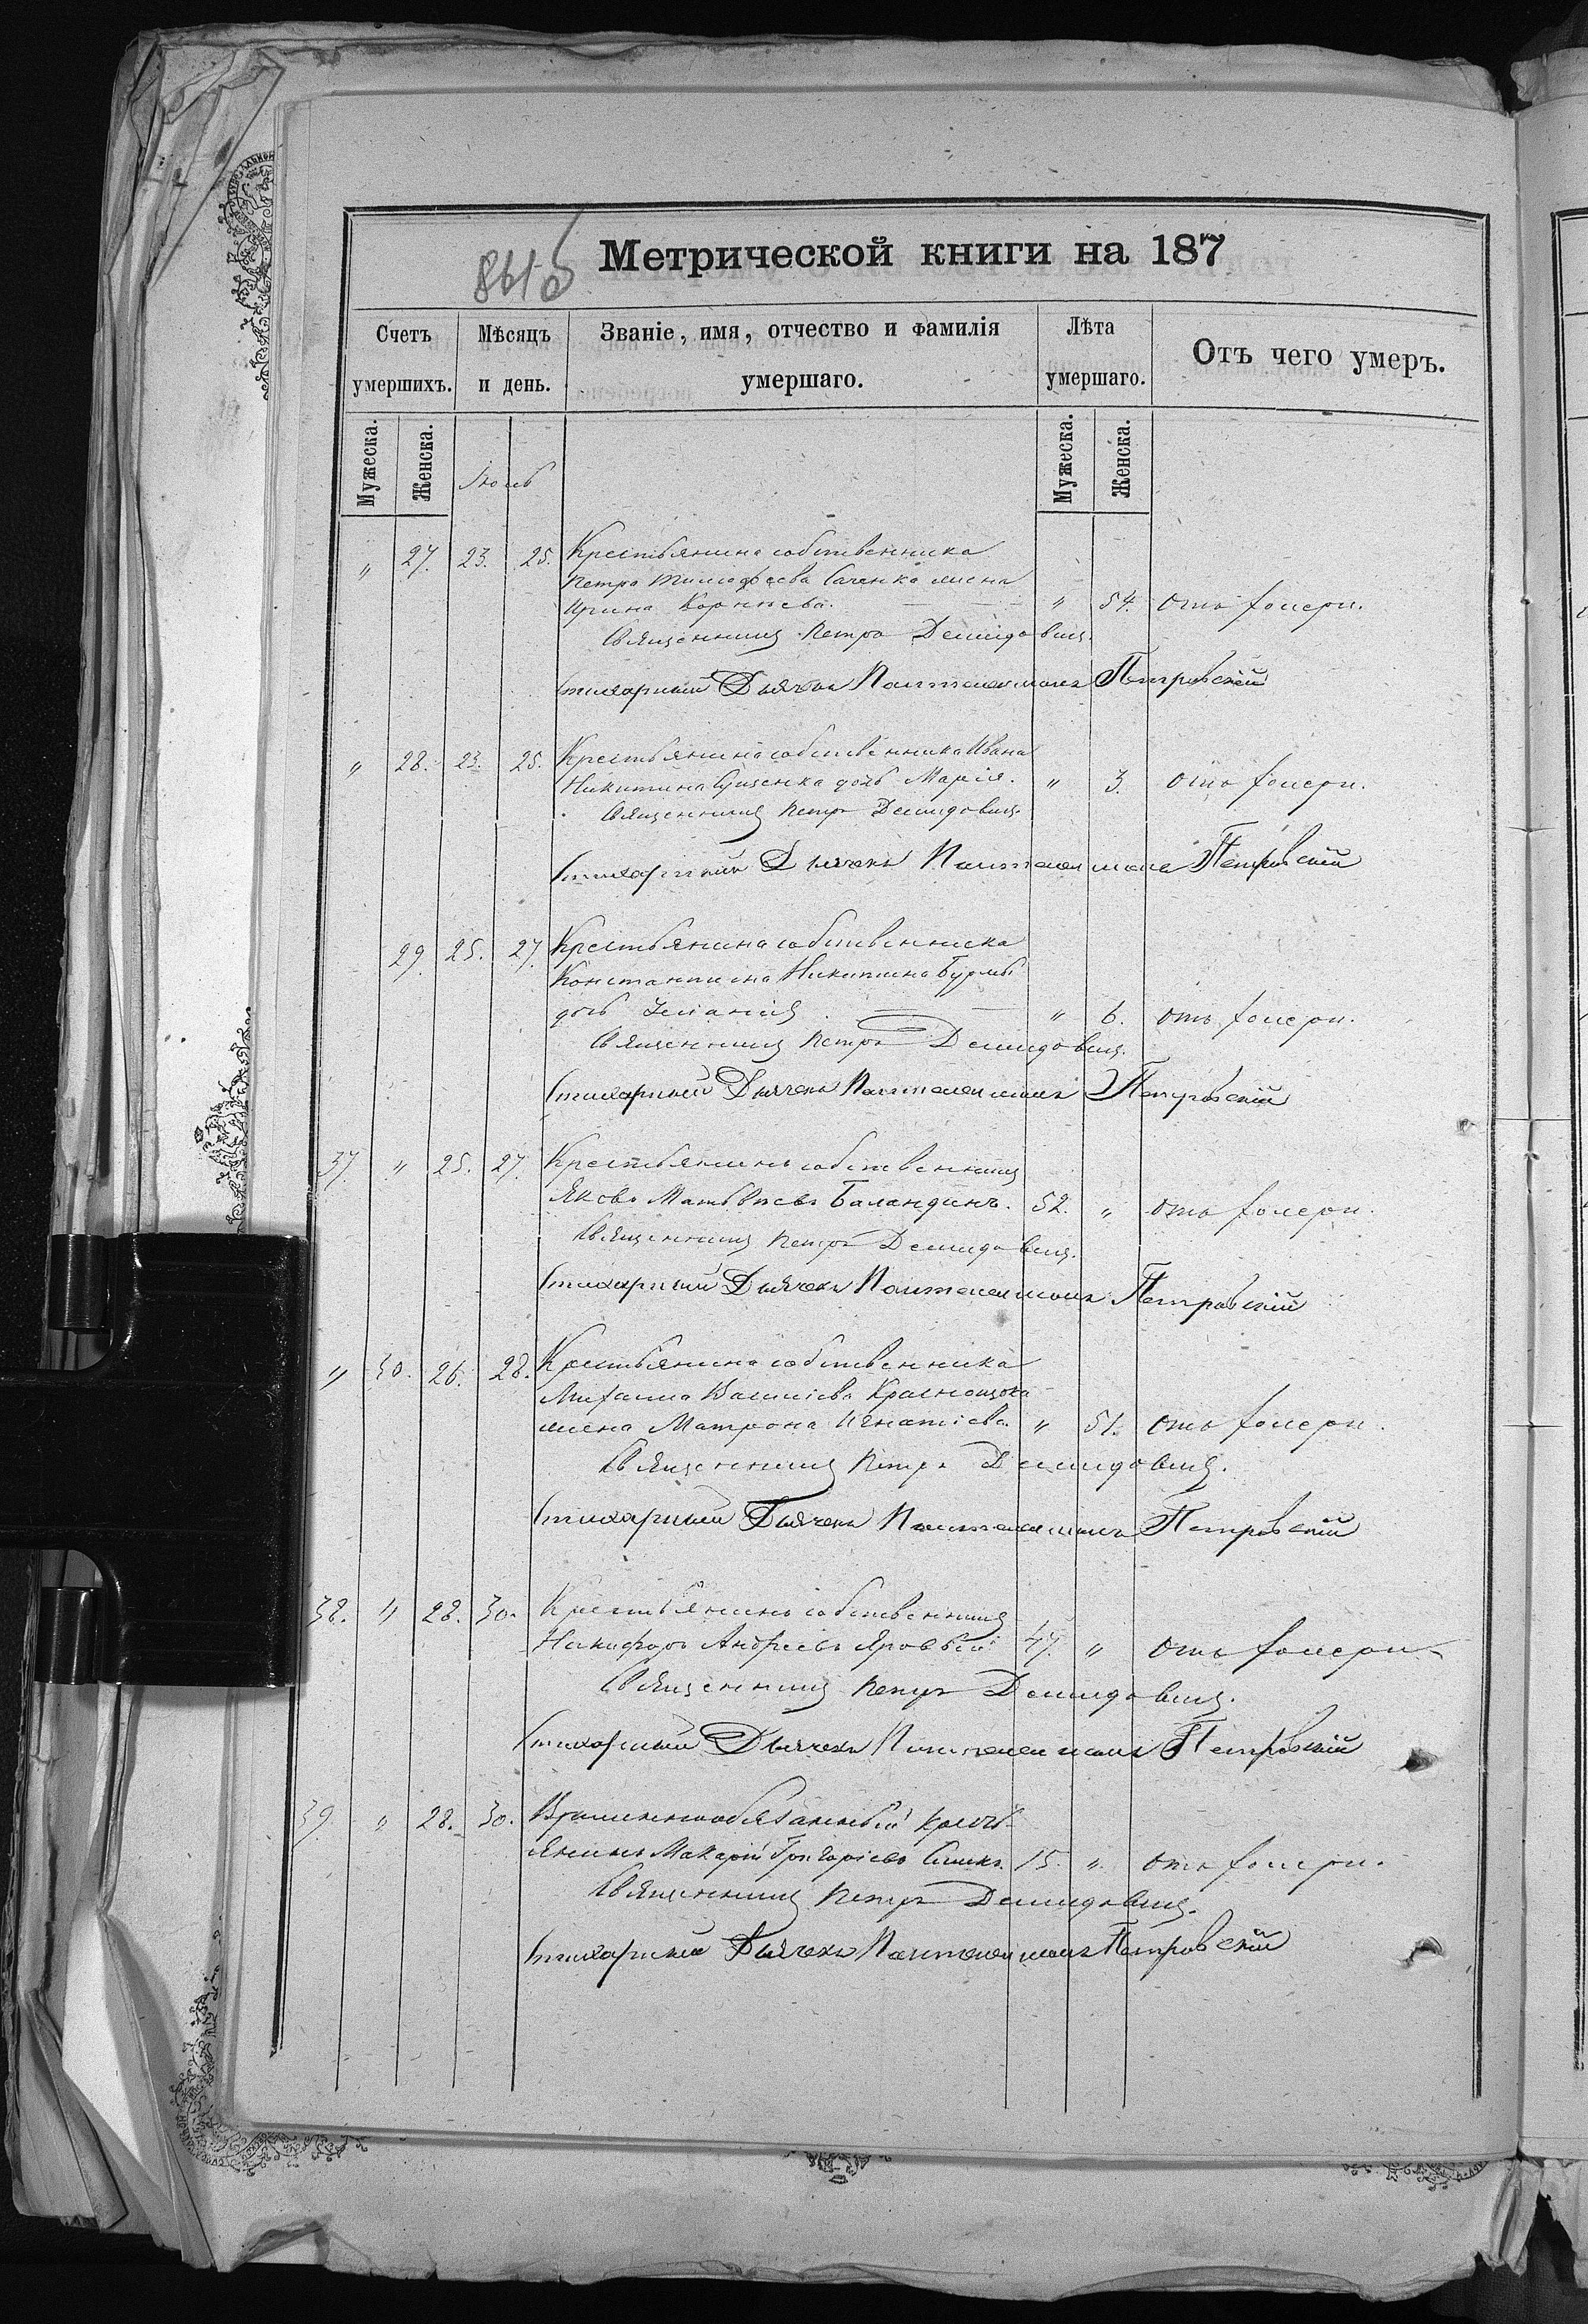 861б
Метрической книги на 187
Счетъ умершихъ.
Мѣсяцъ и день.
Званіе, имя, отчество и фамилія умершаго.
Лѣта умершаго.
Отъ чего умеръ.
Мужеска.
Женска.
Мужеска.
Женска.
Июль
" 27. 23. 25. Крестьянина собственника
Петра Тимофѣева Саченка жена
Ирина Корнѣева. " 54. отъ холеры.
Священникъ Петръ Демидовичъ.
Стихарный Дьячекъ Пантелеимонъ Петровскій
" 28. 23. 25. Крестьянина собственника Ивана
Никитина Гуценка дочь Марія. " 3. отъ холеры.
Священникъ Петръ Демидовичъ.
Стихарный Дьячекъ Пантелеимонъ Петровскій
29. 25. 27. Крестьянина собственника
Константина Никитина Бурлы
дочь " 6. отъ холеры.
Священникъ Петръ Демидовичъ.
Стихарный Дьячекъ Пантелеимонъ Петровскій
37. " 25. 27. Крестьянинъ собственникъ
Яковъ Матвѣевъ Баландинъ. 52. " отъ холеры.
Священникъ Петръ Демидовичъ.
Стихарный Дьячекъ Пантелеимонъ Петровскій
" 30. 26. 28. Крестьянина собственника
Михаила Василіева Краснощока
жена Матрона Игнатіева. " 51. отъ холеры.
Священникъ Петръ Демидовичъ.
Стихарный Дьячекъ Пантелеимонъ Петровскій
38. " 28. 30. Крестьянинъ собственникъ
Никифоръ Андреевъ Яровый 47. " отъ холеры.
Священникъ Петръ Демидовичъ.
Стихарный Дьячекъ Пантелеимонъ Петровскій
39. " 28. 30. Временнообязанный кресть-
янинъ Макарій Григоріевъ 15. " отъ холеры.
Священникъ Петръ Демидовичъ.
Стихарный Дьячекъ Пантелеимонъ Петровскій